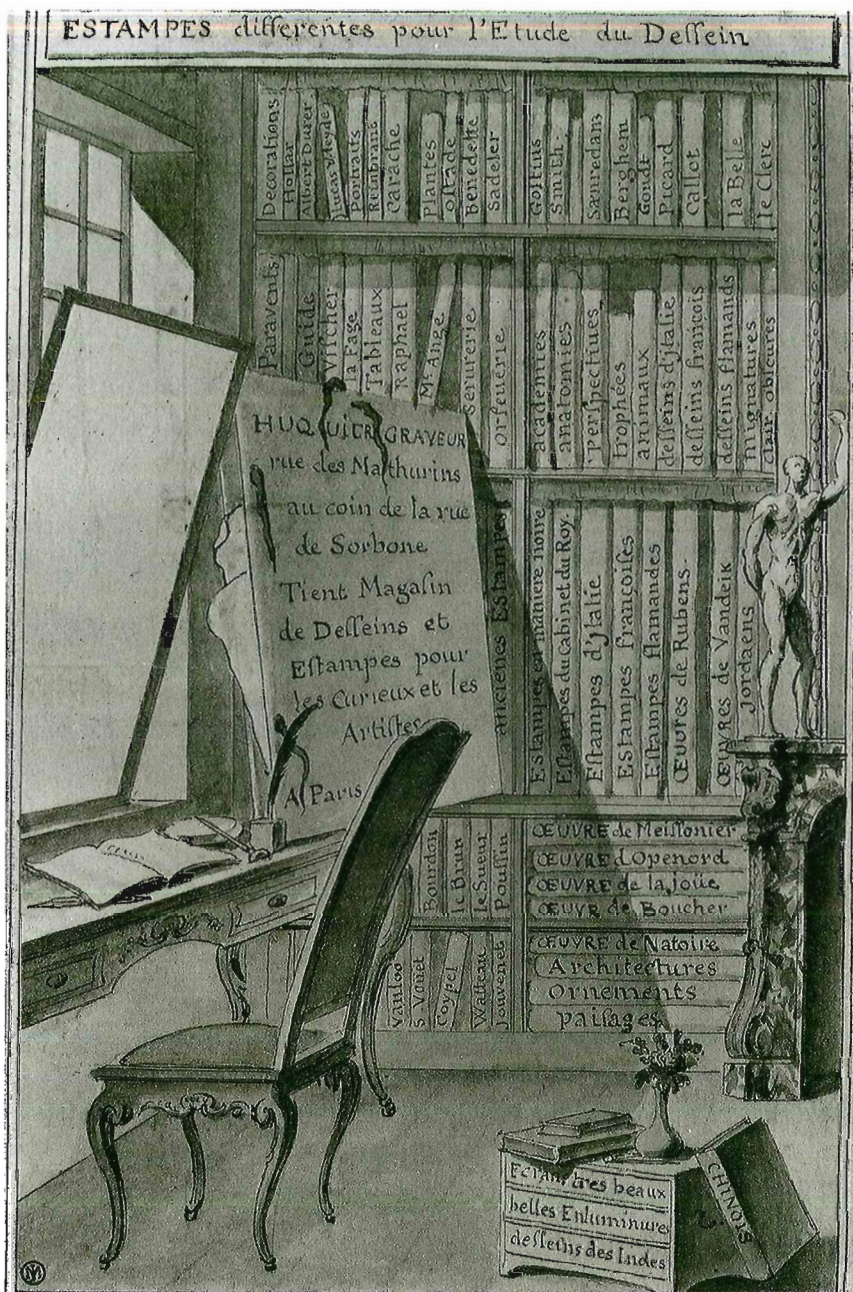 ESTAMPES differentes pour l'Etude du Deſſein
Decorations
Hollar
Albert Durer
Lucas v. leyde
Portraits
Reinbrans
Carache
Plantes
ostade
benedette
Sadeler
Goltius
Smith.
Sanredam
Berghem
Goudt
Picard
Callot
la Belle
le Clerc
Paravents
Guide
Viſcher
la Fage
Tableaux
Raphael
Mc. Ange
serurerie
orfeuerie
academies
anatomies
perſpectiues
trophées
animaux
deſſeins d'jtalie
deſſeins francois
deſſeins flamands
mignatures
clair obſcures
HUQUIER GRAVEUR
rue des Mathurins
au coin de la rue
de Sorbone
Tient Magaſin
de Deſſeins et
Eſtampes pour
les Curieux et les
Artiſtes
A Paris
ancienes Estampes
Estampes en maniere noire
Estampes du Cabinet du Roy.
Eſtampes d'jtalie
Eſtampes françoiſes
Eſtampes flamandes
ŒUvres de Rubens.
ŒUvres de Vandeik
Jordaens
Bourdon
le Brun
le Sueur
Pouſſin
ŒUVRE de Meiſſonier
ŒUVRE d'Openord
ŒUVRE de la Joüe
ŒUVR de Boucher
Vanloo
S. Vouet
Coypel
Watteau
Jouvenet
ŒUVRE de Natoire
Architectures
Ornements
paiſages
Ecrans tres beaux
belles Enluminures
deſſeins des Indes
CHINOIS